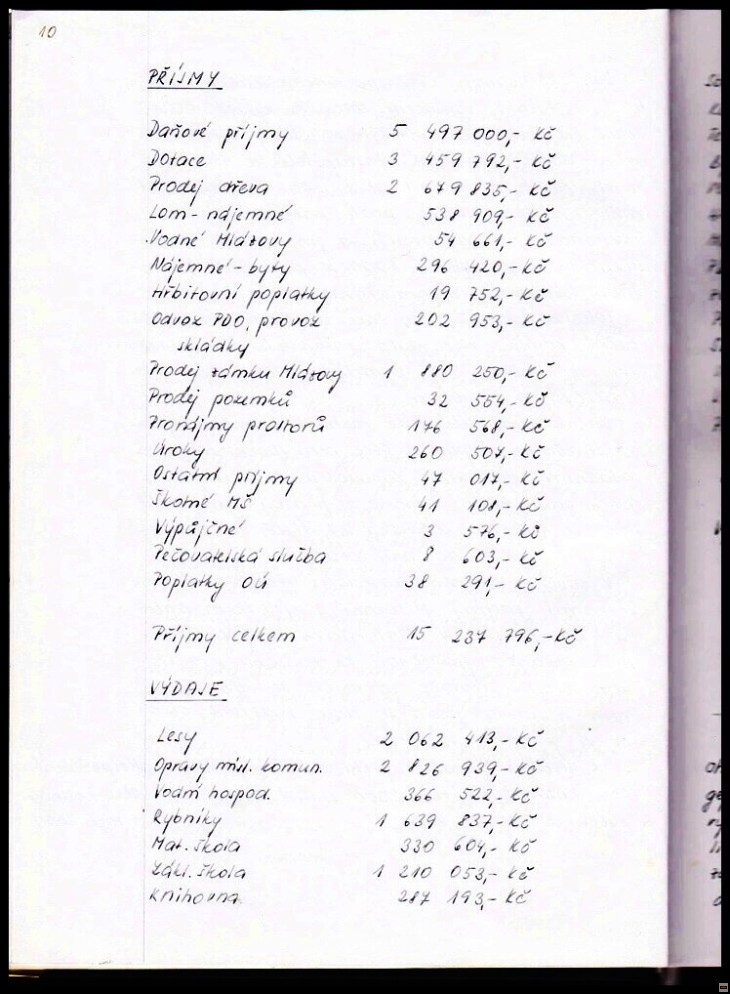 10
PŘÍJMY
Daňové příjmy 5 497 000,- Kč
Dotace 3 459 792,- Kč
Prodej dřeva 2 679 835,- Kč
Lom - nájemné 538 909,- Kč
Vodné Mlázovy 54 661,- Kč
Nájemné - byty 296 420,- Kč
Hřbitovní poplatky 19 752,- Kč
Odvoz PDO, provoz 202 953,- Kč
skládky
Prodej zámku Mlázovy 1 880 250,- Kč
Prodej pozemků 32 554,- Kč
Pronájmy prostorů 176 568,- Kč
Úroky 260 507,- Kč
Ostatní příjmy 47 017,- Kč
Školné MŠ 41 108,- Kč
Výpůjčné 3 576,- Kč
Pečovatelská služba 8 603,- Kč
Poplatky OÚ 38 291,- Kč
Příjmy celkem 15 237 796,- Kč
VÝDAJE
Lesy 2 062 413,- Kč
Opravy míst. komun. 2 826 939,- Kč
Vodní hospod. 366 522,- Kč
Rybníky 1 639 837,- Kč
Mat. škola 330 604,- Kč
Zákl. škola 1 210 053,- Kč
Knihovna 287 193,- Kč